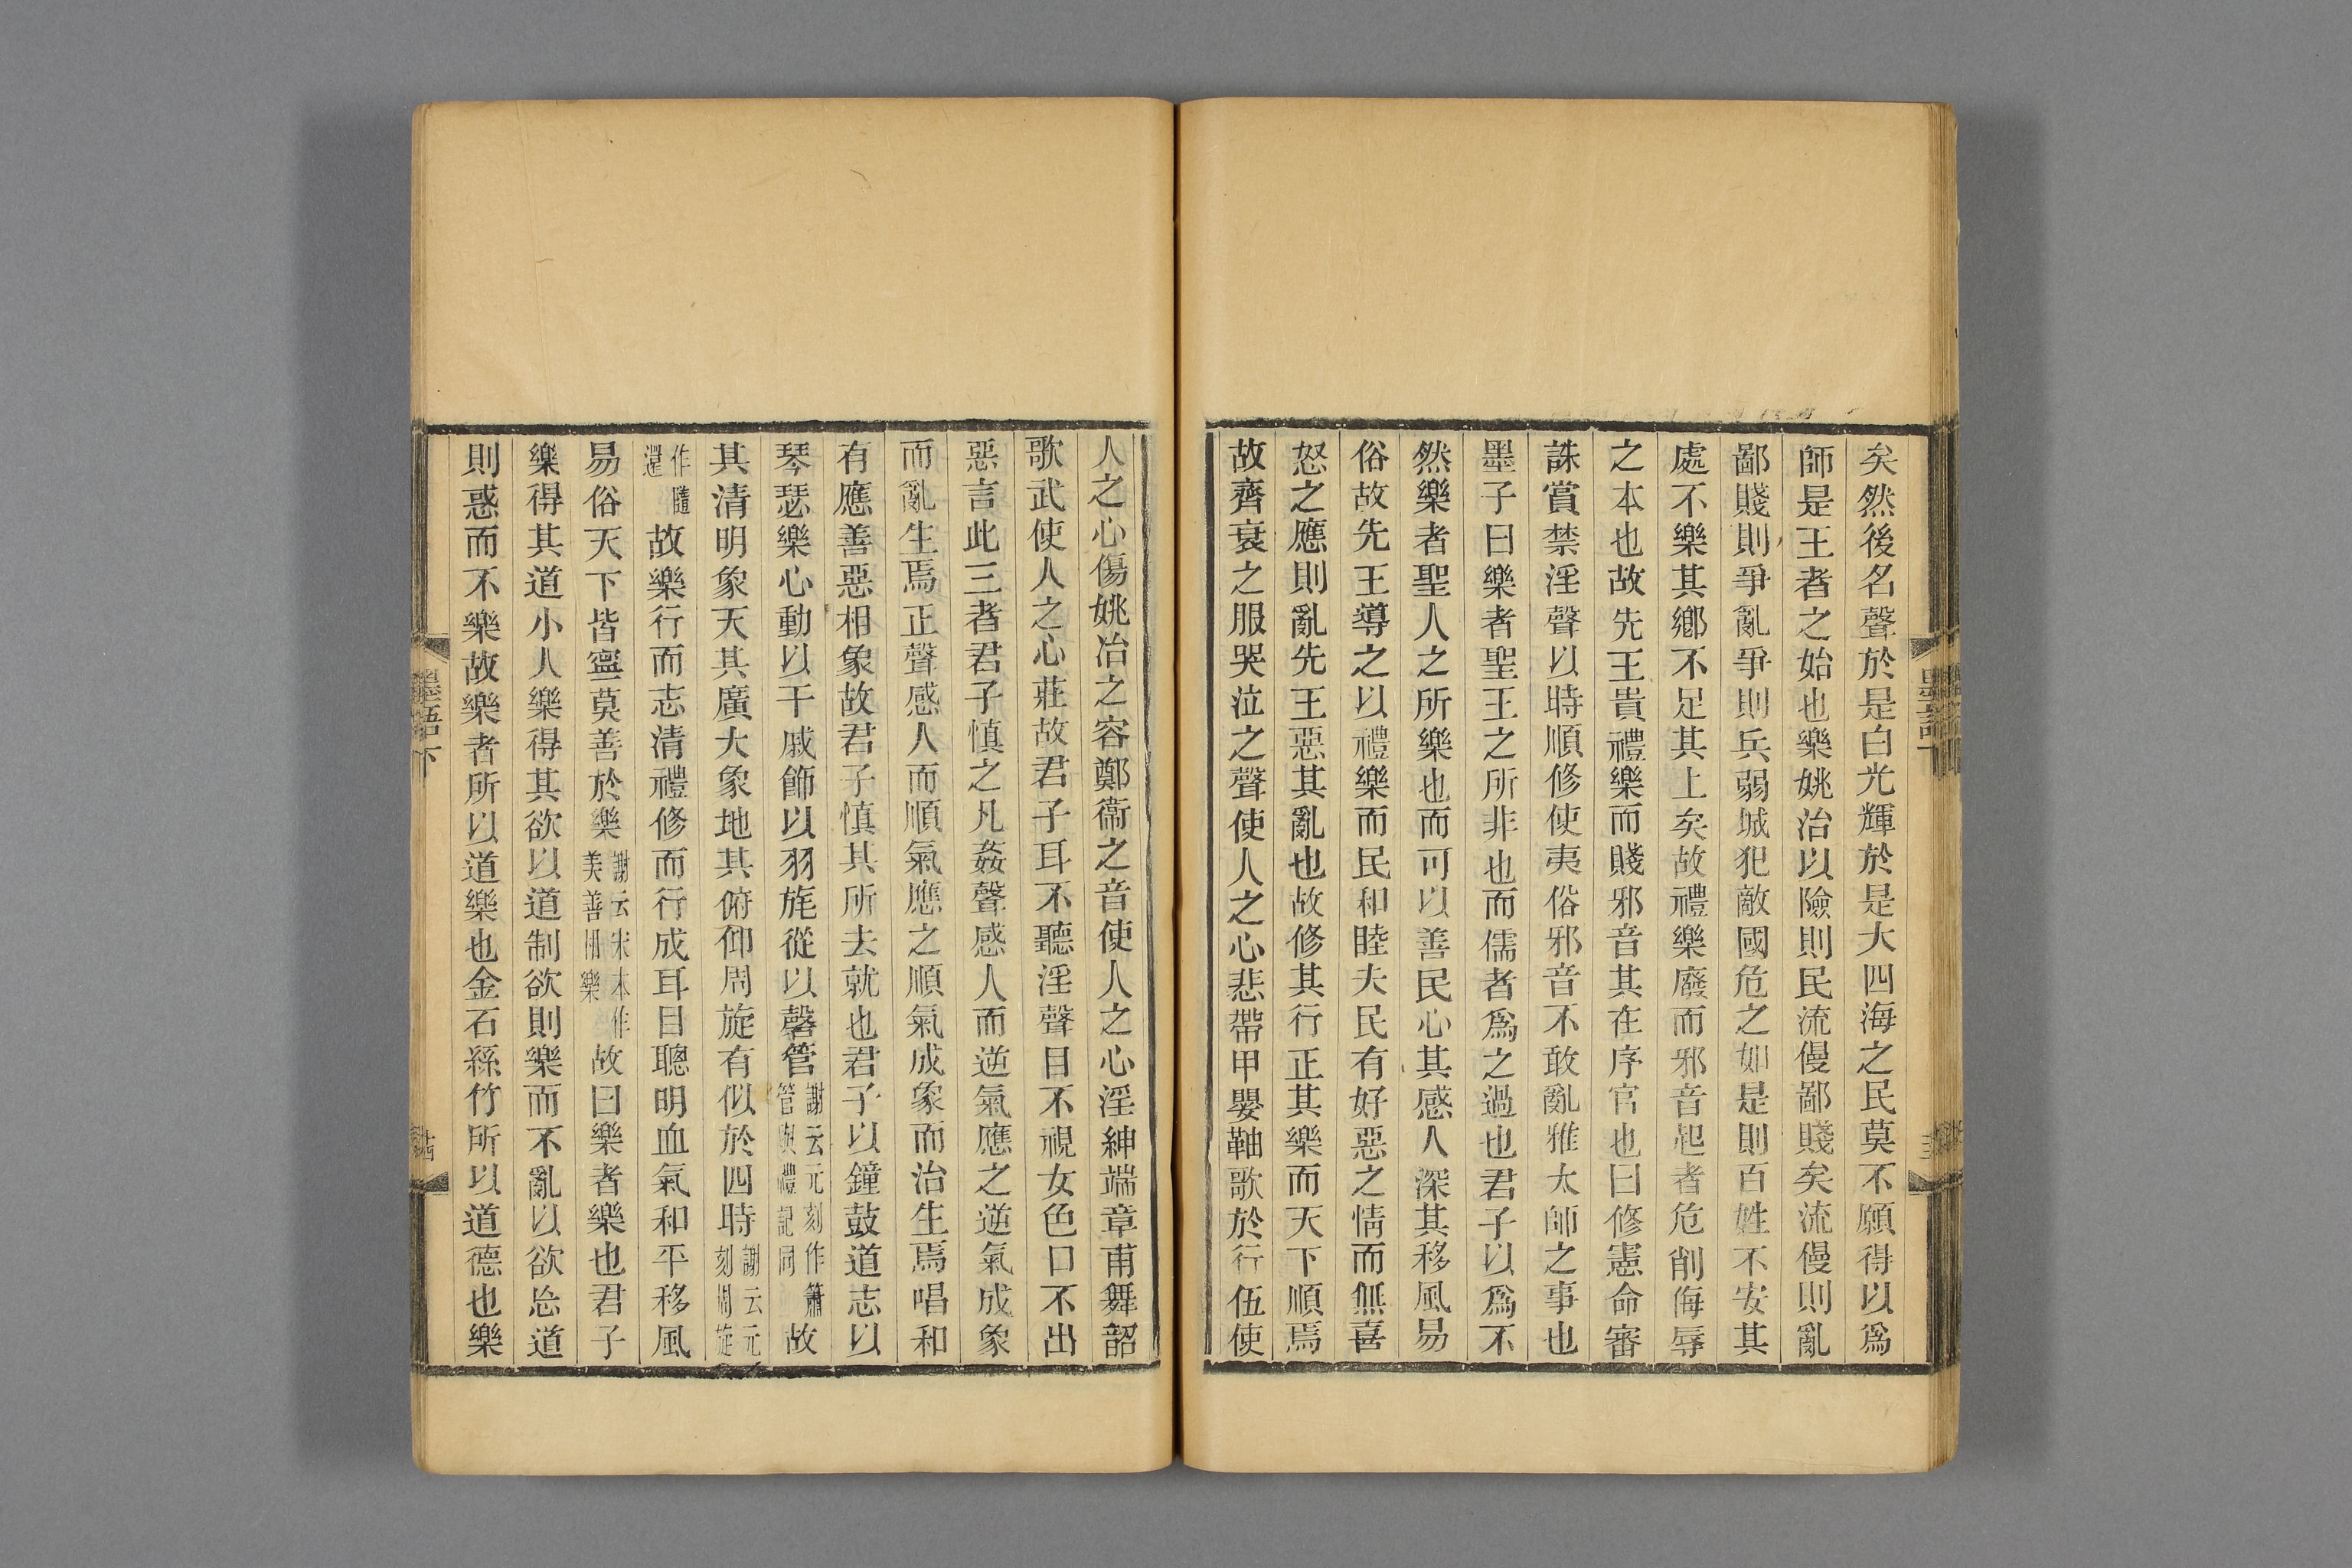 矣然後名聲於是白光輝於是大四海之民莫不願得以爲
師是王者之始也樂姚冶以險則民流僈鄙賤矣流僈則亂
鄙賤則爭亂爭則兵弱城犯敵國危之如是則百姓不安其
處不樂其鄉不足其上矣故禮樂廢而邪音起者危削侮辱
之本也故先王貴禮樂而賤邪音其在序官也曰修憲命審
誅賞禁淫聲以時順修使夷俗邪音不敢亂雅太師之事也
墨子曰樂者聖王之所非也而儒者爲之過也君子以爲不
然樂者聖人之所樂也而可以善民心其感人深其移風易
俗故先王導之以禮樂而民和睦夫民有好惡之情而無喜
怒之應則亂先王惡其亂也故修其行正其樂而天下順焉
故齊衰之服哭泣之聲使人之心悲帶甲嬰鞧歌於行伍使
墨語下
人之心傷姚冶之容鄭衞之音使人之心淫紳端章甫舞韶
歌武使人之心莊故君子耳不聽淫聲目不視女色口不出
惡言此三者君子愼之凡姦聲感人而逆氣應之逆氣成象
而亂生焉正聲感人而順氣應之順氣成象而治生焉唱和
有應善惡相象故君子愼其所去就也君子以鐘鼓道志以
琴瑟樂心動以干戚飾以羽旄從以磬管謝云元刻作簫管與禮記同故
其清明象天其廣大象地其俯仰周旋有似於四時謝云元刻周旋
作隨還故樂行而志清禮修而行成耳目聰明血氣和平移風
易俗天下皆寧莫善於樂謝云宋本作美善相樂故曰樂者樂也君子
樂得其道小人樂得其欲以道制欲則樂而不亂以欲忘道
則惑而不樂故樂者所以道樂也金石絲竹所以道德也樂
墨語下